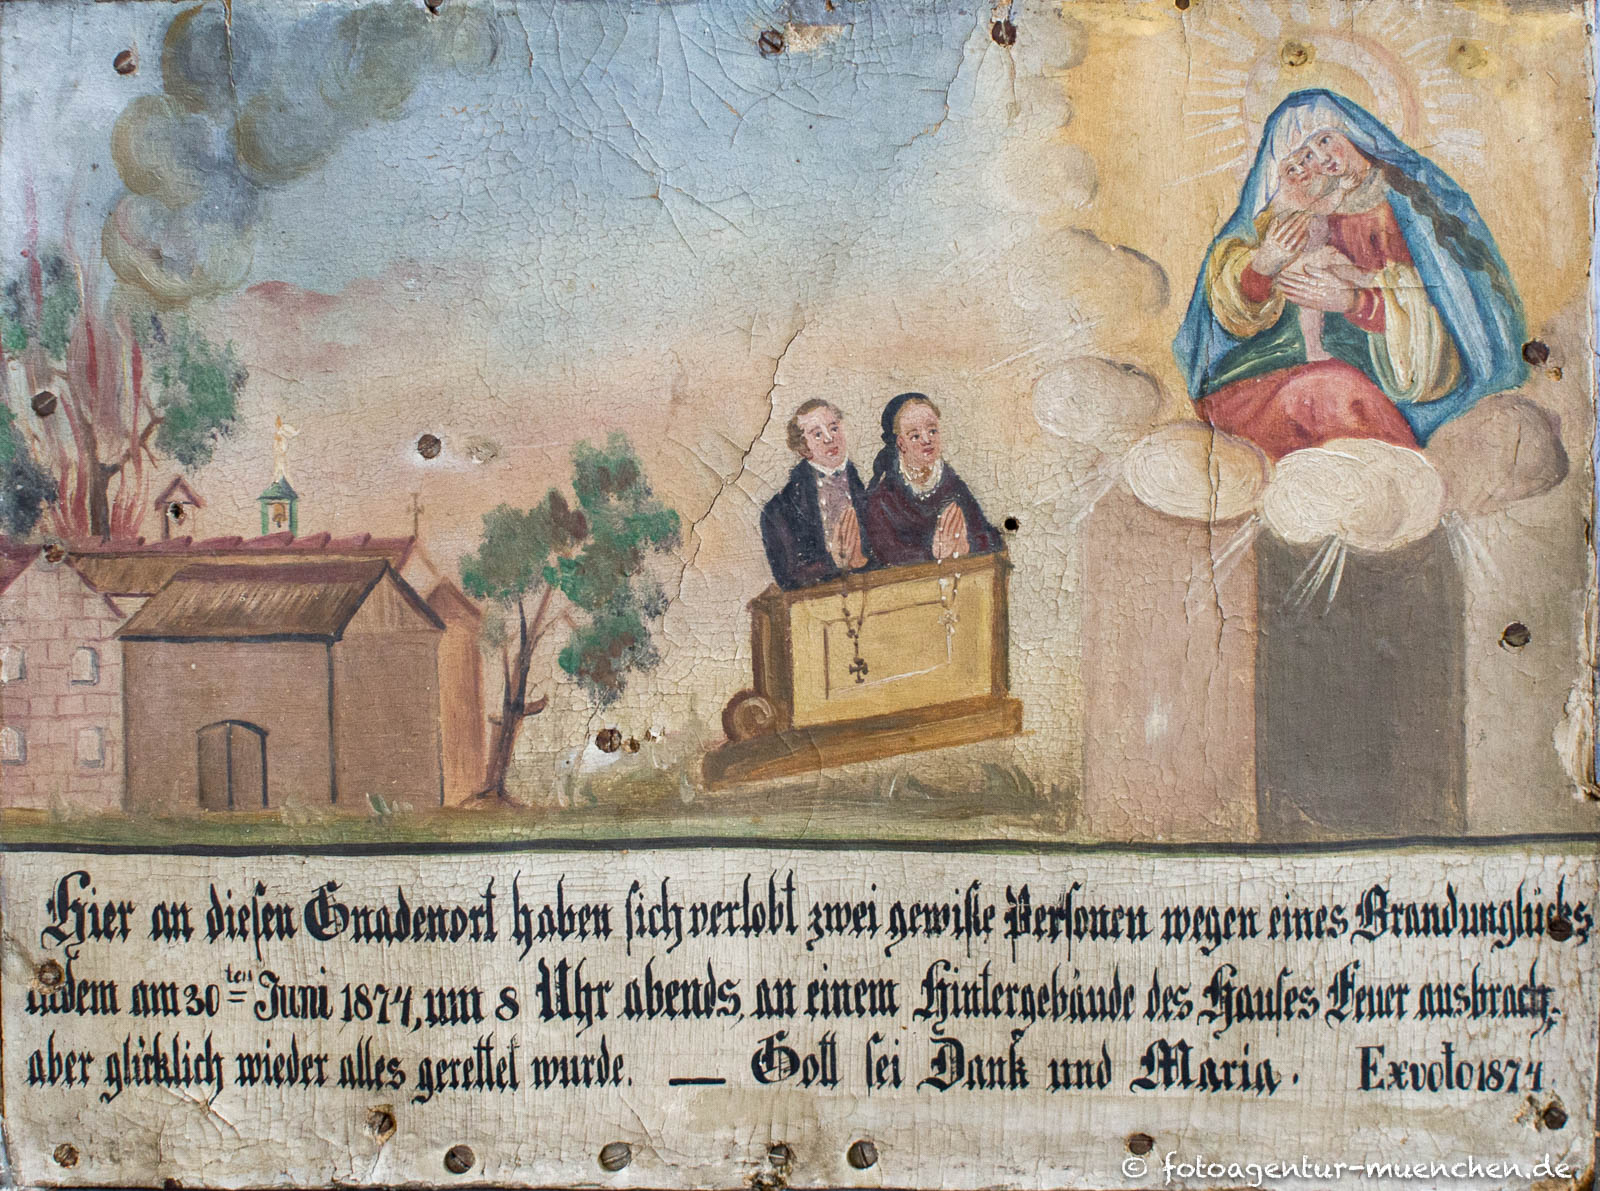 Hier an diesen Gnadenort haben sich verlobt zwei gewiße Personen wegen eines Brandunglücks,
indem am 30ten Juni 1874, um 8 Uhr abends, an einem Hintergebäude des Hauses Feuer ausbrach,
aber glücklich wieder alles gerettet wurde. — Gott sei Dank und Maria. Exvoto 1874.
© fotoagentur-muenchen.de